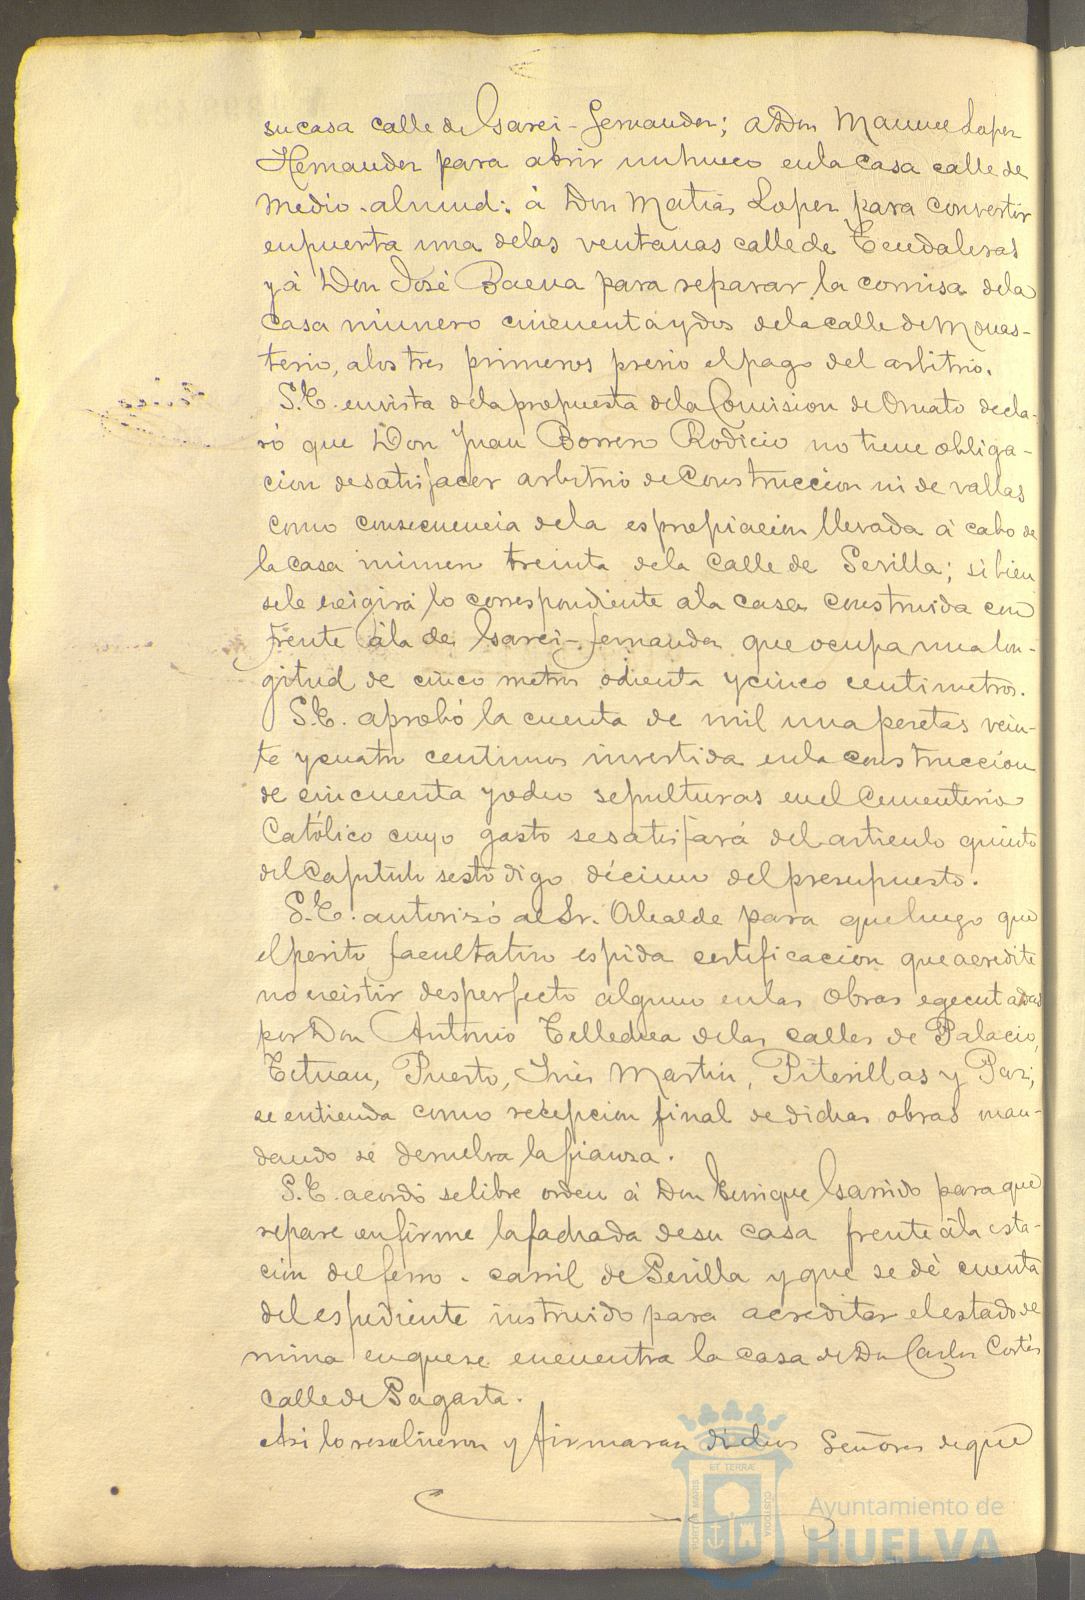 su casa calle de Garci-Fernandez; a Don Manuel Lopez
Hernandez para abrir un hueco en la casa calle de
Medio-almud: á Don Matias Lopez para convertir
en puerta una de las ventanas calle de Tendaleras
y á Don José Baena para reparar la cornisa de la
casa número cincuenta y dos de la calle de Monas-
terio, a los tres primeros previo el pago del arbitrio.
S.E. en vista de la propuesta de la Comision de Ornato decla-
ró que Don Juan Borrero Rodicio no tiene obliga-
cion de satisfacer arbitrio de Construccion ni de vallas
como consecuencia de la espropiacion llevada á cabo de
la casa número treinta de la calle de Sevilla; si bien
se le exigirá lo correspondiente a la casa construida con
frente á la de Garci-Fernandez que ocupa una lon-
gitud de cinco metros ochenta y cinco centimetros.
S.E. aprobó la cuenta de mil una pesetas vein-
te y cuatro centimos invertida en la construccion
de cincuenta y ocho sepulturas en el Cementerio
Católico cuyo gasto se satisfará del articulo quinto
del Capitulo sesto digo décimo del presupuesto.
S.E. autorizó al Sr. Alcalde para que luego que
el perito facultativo espida certificacion que acredite
no existir desperfecto alguno en las obras egecutadas
por Don Antonio Tellechea de las calles de Palacio,
Tetuan, Puerto, Inés Martin, Piterillas y Paz,
se entienda como recepcion final de dichas obras man-
dando se devuelva la fianza.
S.E. acordó se libre orden á Don Enrique Garrido para que
repare en firme la fachada de su casa frente á la esta-
cion del ferro-carril de Sevilla y que se dé cuenta
del espediente instruido para acreditar el estado de
ruina en que se encuentra la casa de Don Carlos Cortés
calle de Sagasta.
Asi lo resolvieron y firmaran dichos Señores de que
PORTUS MARIS ET TERRÆ CUSTODIA
Ayuntamiento de
HUELVA